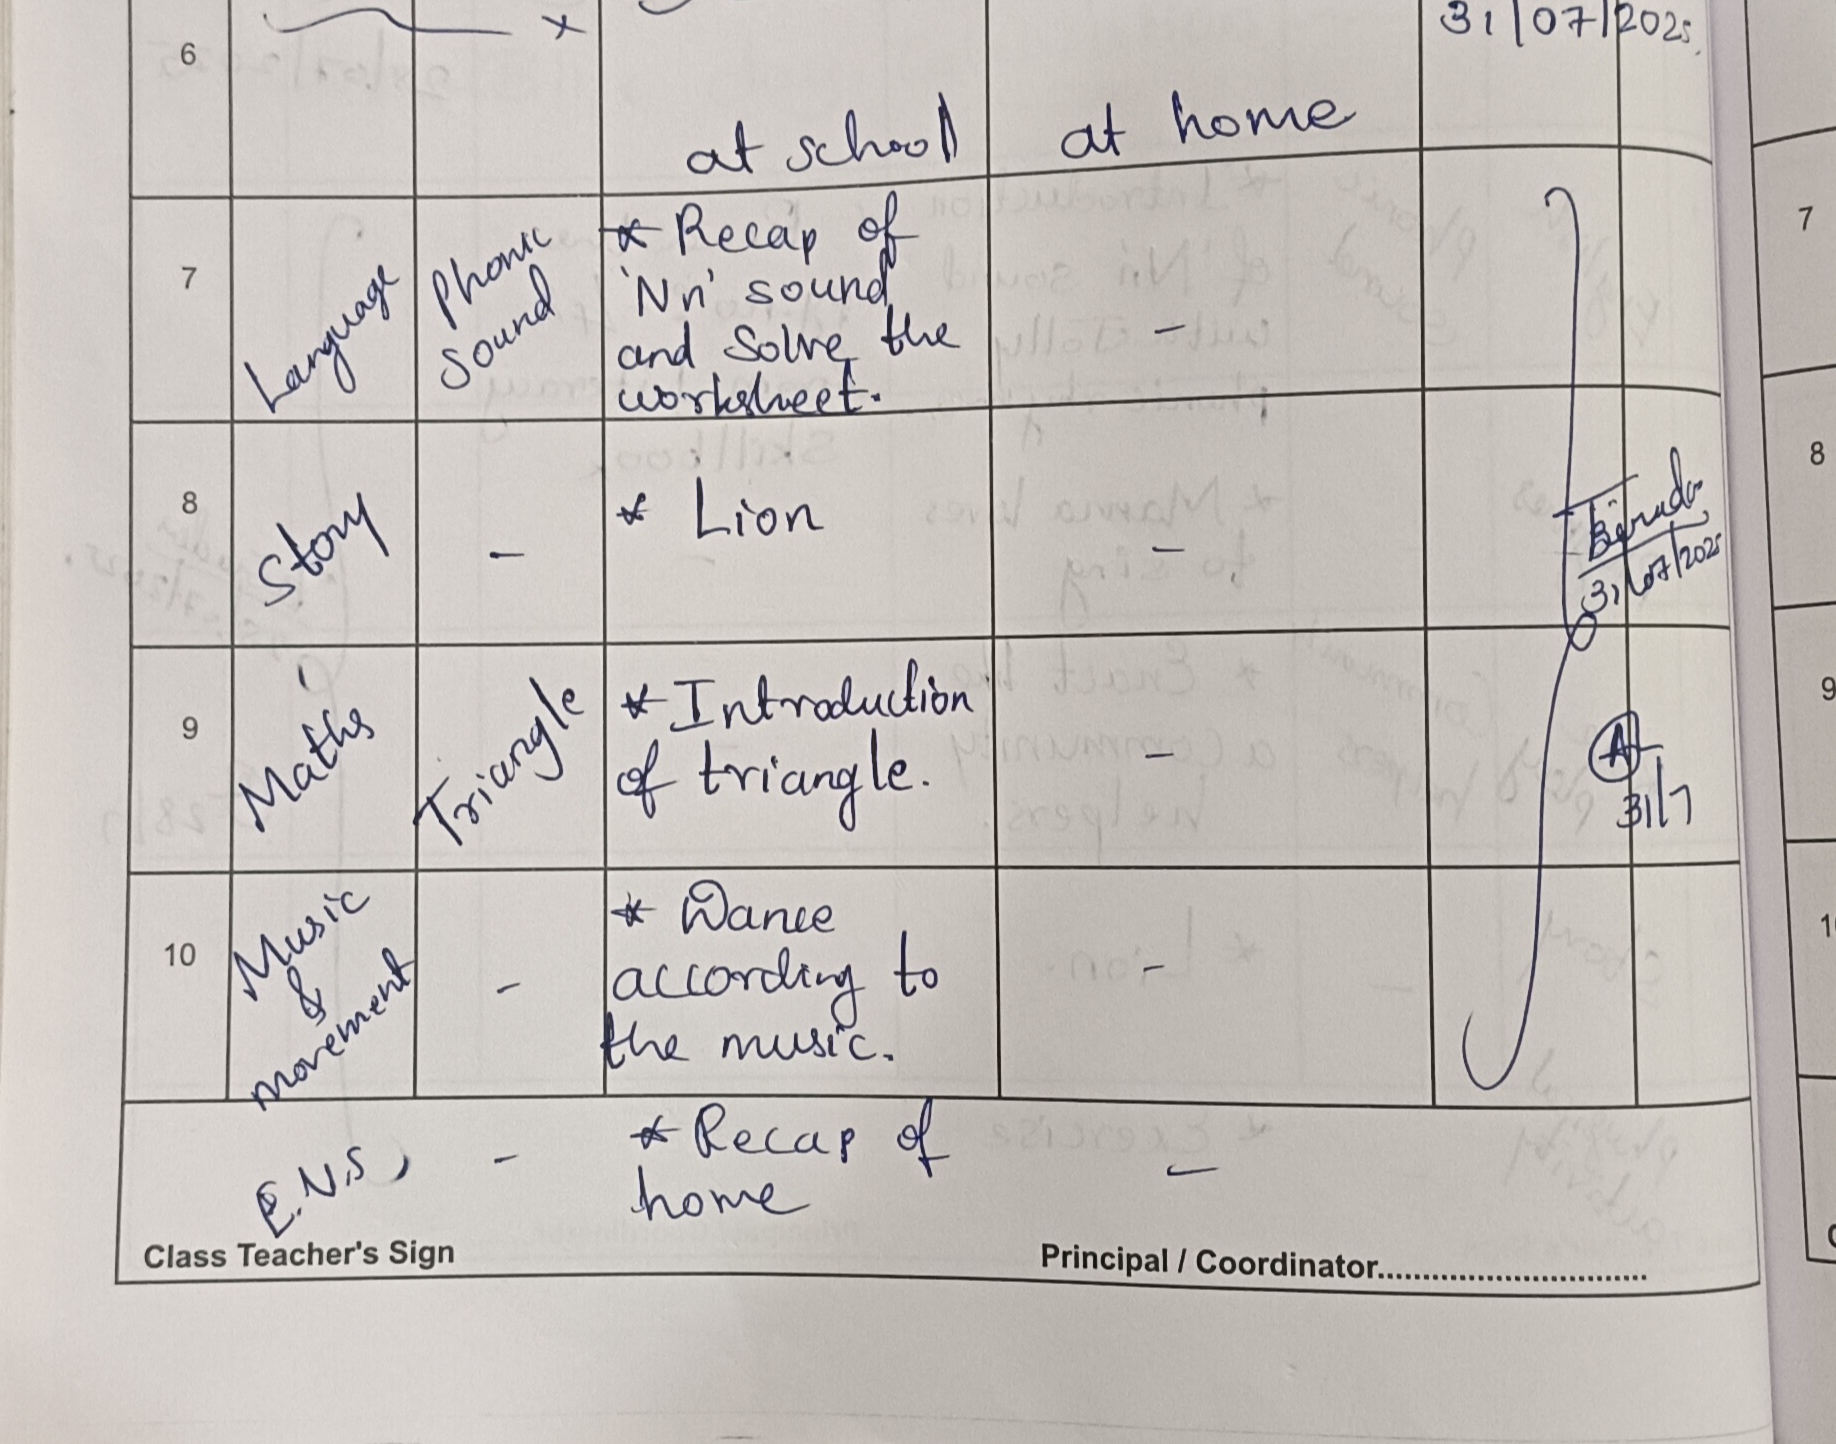 31/07/2025.
6
x
at school at home
7 Language Phonic Sound * Recap of
'Nn' sound
and Solve the
worksheet. -
8 Story - * Lion -
31/07/2025
9 Maths Triangle * Introduction
of triangle. -
A
31/7
10 Music & movement - * Dance
according to
the music. -
E.V.S - * Recap of
home -
Class Teacher's Sign Principal / Coordinator..............................
7
8
9